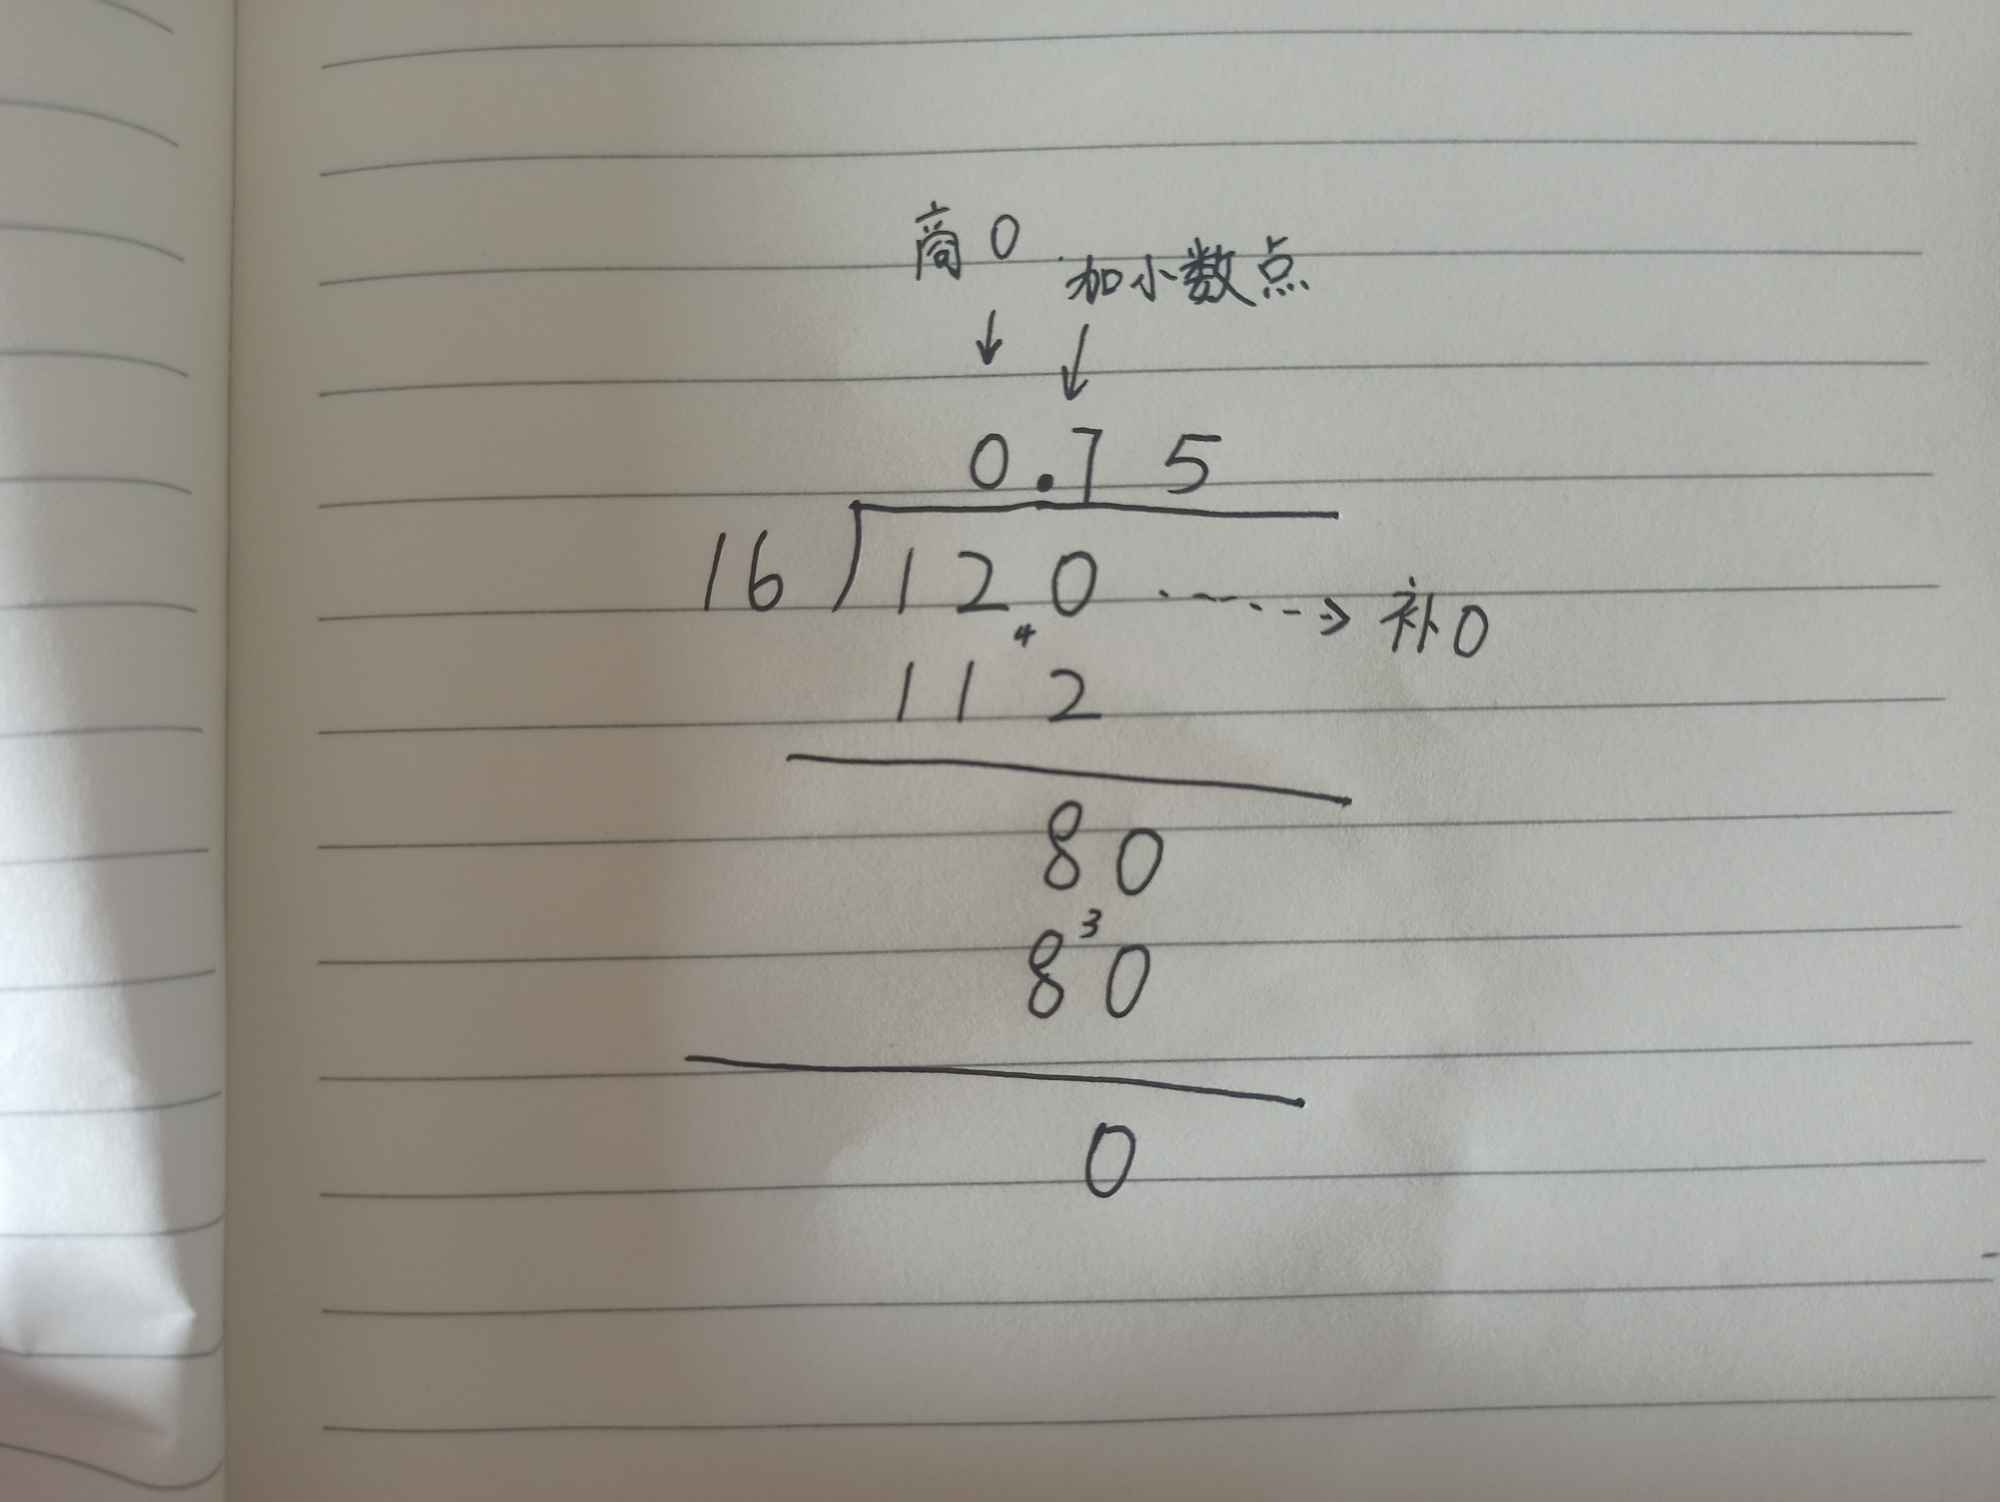 商0
加小数点
↓ ↓
0.75
16 120 ----→ 补0
4
112
80
3
80
0